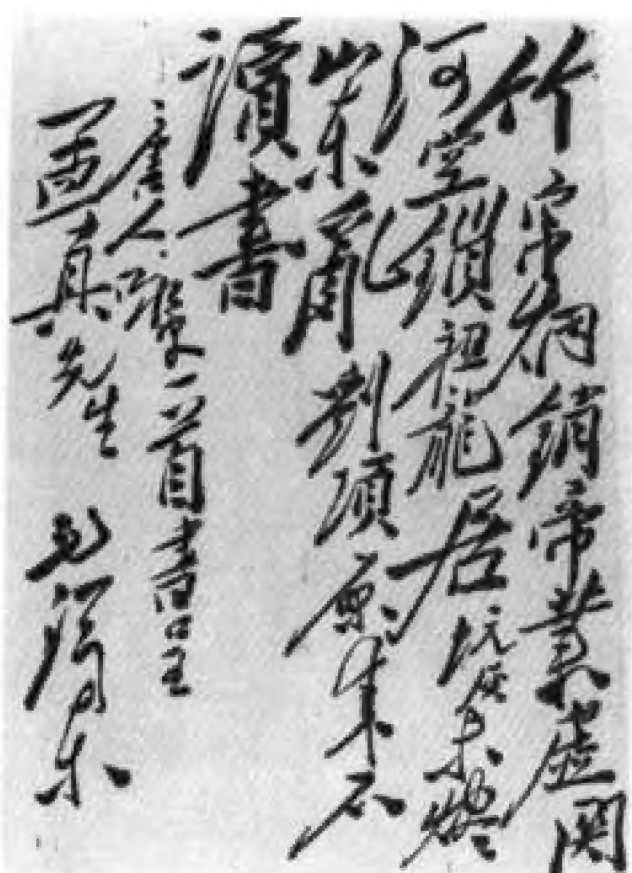 竹帛烟銷帝業虛関
河空鎖祖龍居坑灰未燼
山東亂劉項原來不
讀書
唐人詠史一首書呈
孟真先生 毛澤東